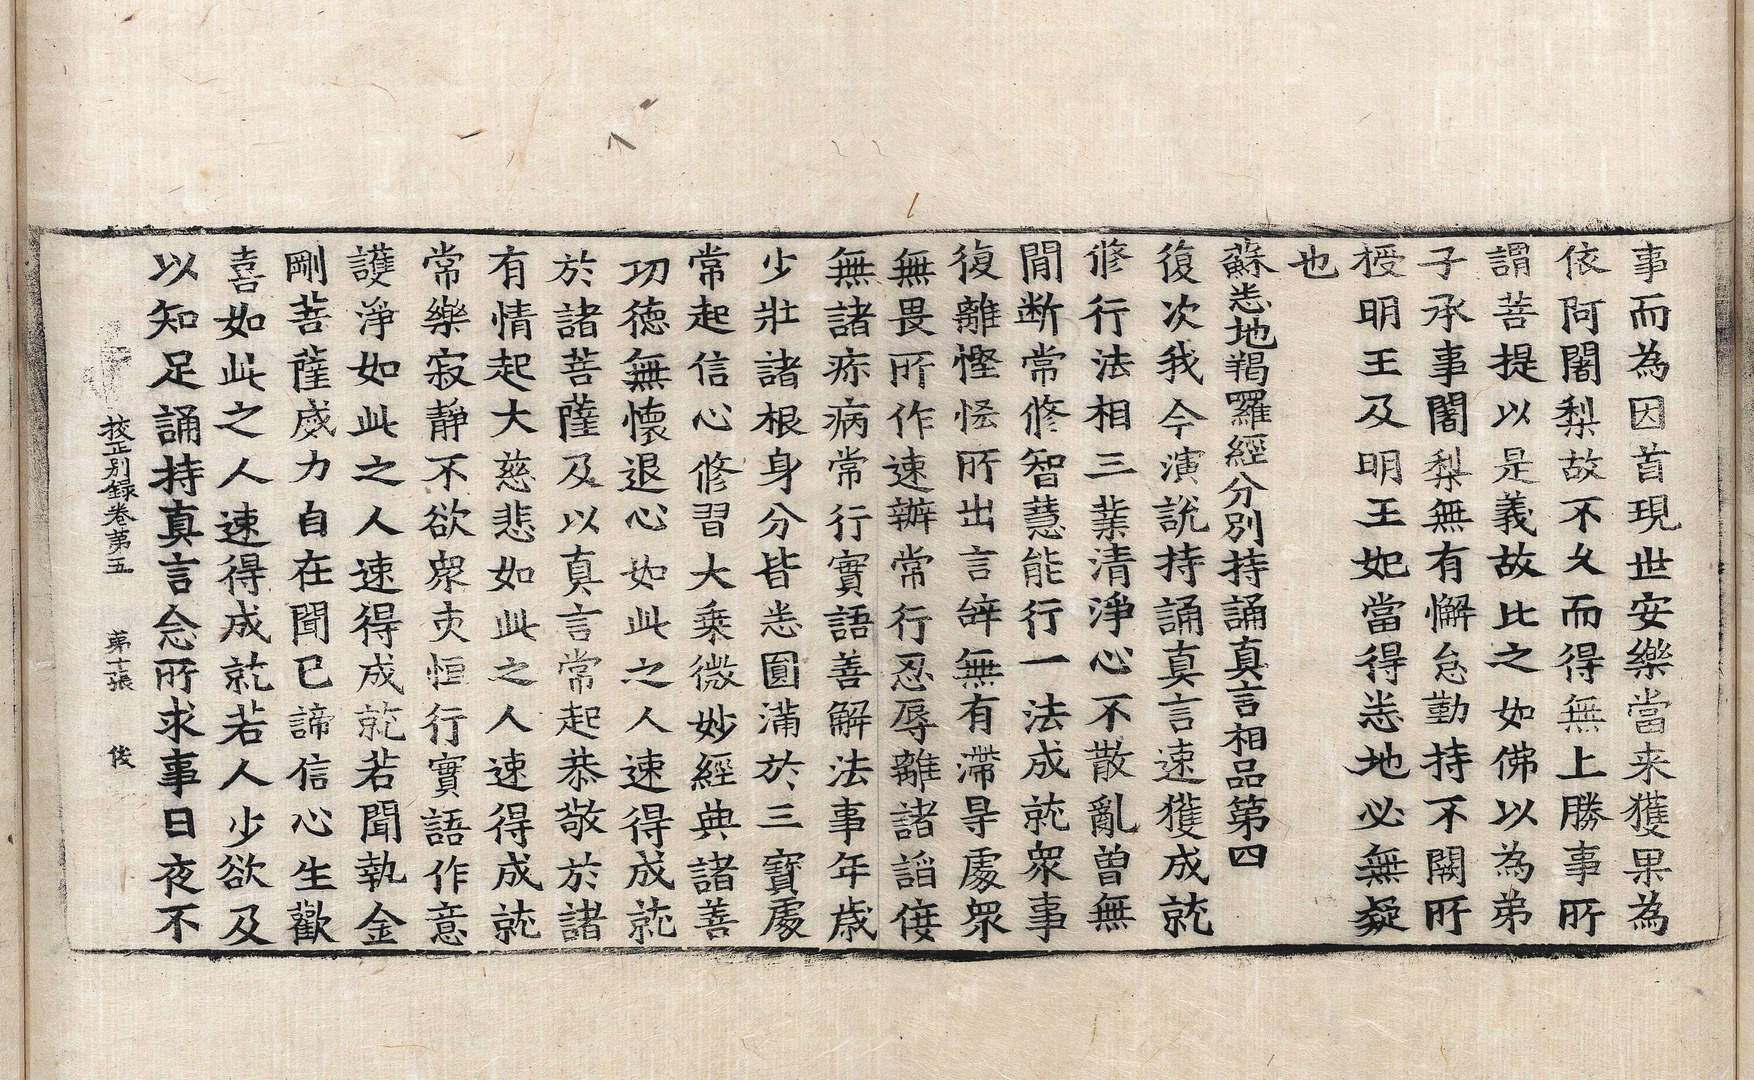 事而為因首現世安樂當来獲果為
依阿闍梨故不久而得無上勝事所
謂菩提以是義故比之如佛以為弟
子承事闍梨無有懈怠勤持不闕所
授明王及明王妃當得悉地必無疑
也
蘇悉地羯羅經分別持誦真言相品第四
復次我今演說持誦真言速獲成就
修行法相三業清淨心不散亂曽無
閒断常修智慧能行一法成就衆事
復離慳悋所出言辞無有滯㝵處衆
無畏所作速辦常行忍辱離諸諂侫
無諸疹病常行實語善解法事年歲
少壯諸根身分皆悉圓滿於三寶處
常起信心修習大乗微妙經典諸善
功德無懷退心如此之人速得成就
於諸菩薩及以真言常起恭敬於諸
有情起大慈悲如此之人速得成就
常樂寂靜不欲衆㑹恒行實語作意
護淨如此之人速得成就若聞執金
剛菩薩威力自在聞已諦信心生歡
喜如此之人速得成就若人少欲及
以知足誦持真言念所求事日夜不
校正別録卷第五 第十張 俊